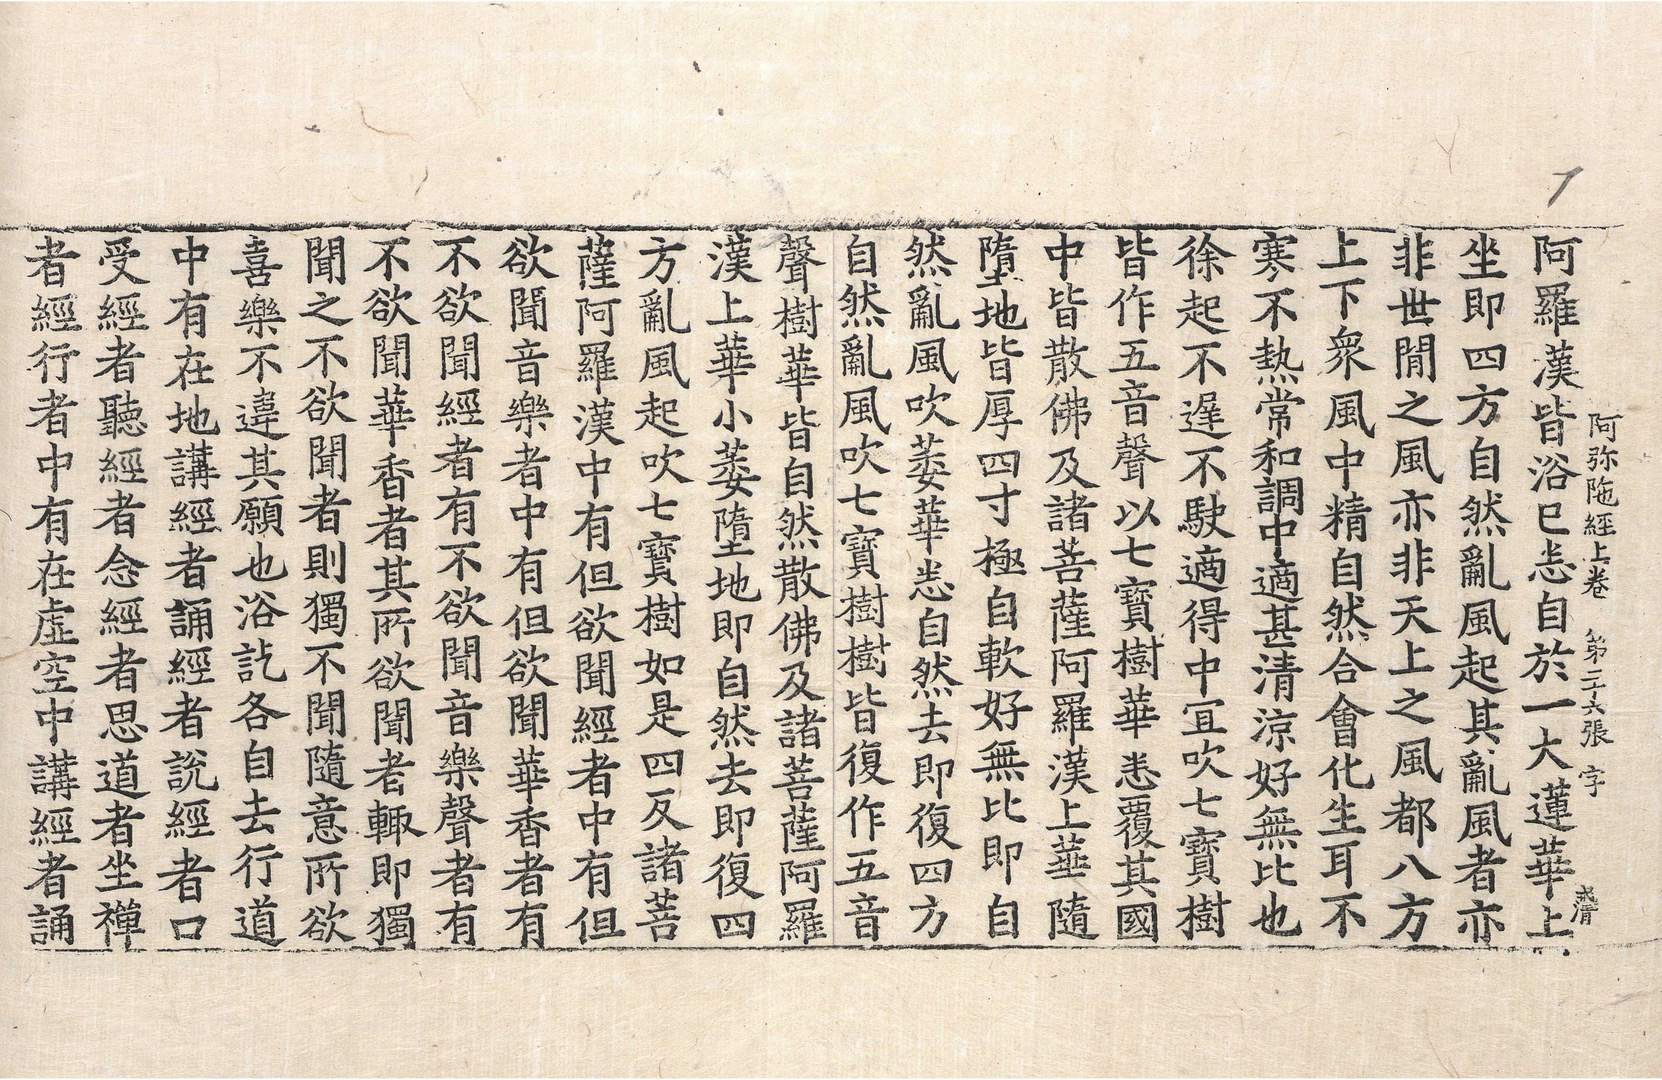 阿弥陁經上卷 第二十六張 字
戒淸
阿羅漢皆浴已悉自於一大蓮華上
坐即四方自然亂風起其亂風者亦
非世閒之風亦非天上之風都八方
上下衆風中精自然合會化生耳不
寒不熱常和調中適甚清涼好無比也
徐起不遟不駛適得中冝吹七寶樹
皆作五音聲以七寶樹華悉覆其國
中皆散佛及諸菩薩阿羅漢上華隨
墮地皆厚四寸極自軟好無比即自
然亂風吹萎華悉自然去即復四方
自然亂風吹七寶樹樹皆復作五音
聲樹華皆自然散佛及諸菩薩阿羅
漢上華小萎墮地即自然去即復四
方亂風起吹七寶樹如是四反諸菩
薩阿羅漢中有但欲聞經者中有但
欲聞音樂者中有但欲聞華香者有
不欲聞經者有不欲聞音樂聲者有
不欲聞華香者其所欲聞者輙即獨
聞之不欲聞者則獨不聞隨意所欲
喜樂不違其願也浴訖各自去行道
中有在地講經者誦經者說經者口
受經者聽經者念經者思道者坐禪
者經行者中有在虛空中講經者誦